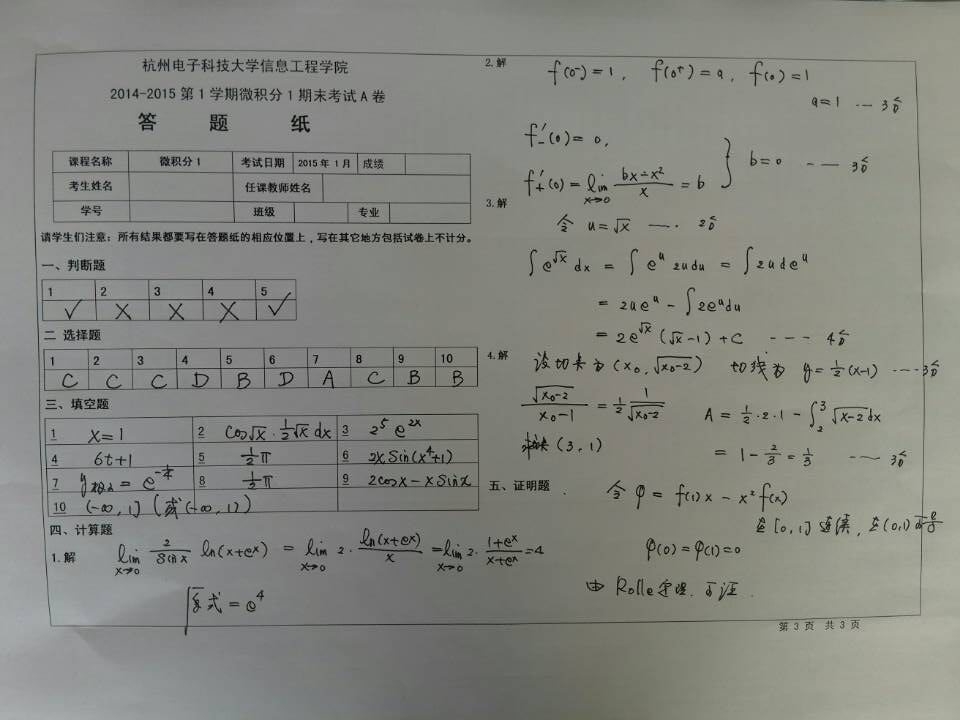 杭州电子科技大学信息工程学院
2014-2015 第 1 学期微积分 1 期末考试 A 卷
答 题 纸
课程名称 微积分 1 考试日期 2015 年 1 月 成绩
考生姓名 任课教师姓名
学号 班级 专业
请学生们注意：所有结果都要写在答题纸的相应位置上，写在其它地方包括试卷上不计分。
一、判断题
1 2 3 4 5
√ X X X √
二 选择题
1 2 3 4 5 6 7 8 9 10
C C C D B D A C B B
三、填空题
1 x=1 2 cos√x · 1/2√x dx 3 2^5 e^{2x}
4 6t+1 5 1/2 π 6 2x sin(x^4+1)
7 = e^{-1/e} 8 1/2 π 9 2cosx - x sinx
10 (-∞, 1] (或(-∞, 1))
四、计算题
1.解 lim_{x→0} 2/sinx ln(x+e^x) = lim_{x→0} 2 · ln(x+e^x)/x = lim_{x→0} 2 · (1+e^x)/(x+e^x) = 4
原式 = e^4
2.解 f(0^-)=1, f(0^+)=a, f(0)=1
a=1 --- 3分
f'_-(0)=0,
f'_+(0)=lim_{x→0} (bx-x^2)/x = b } b=0 --- 3分
3.解
令 u=√x ---- 2分
∫e^{√x}dx = ∫e^u 2udu = ∫2u de^u
= 2ue^u - ∫2e^u du
= 2e^{√x}(√x-1)+C --- 4分
4.解 设切点为 (x_0, √(x_0-2)) 切线为 y=1/2(x-1) ---3分
√(x_0-2)/(x_0-1) = 1/2 1/√(x_0-2) A = 1/2·2·1 - ∫_2^3 √(x-2)dx
(3,1) = 1 - 2/3 = 1/3 --- 3分
五、证明题 令 φ = f(1)x - x^2 f(x)
在[0,1]连续, 在(0,1)可导
φ(0)=φ(1)=0
由 Rolle定理, 可证.
第 3 页 共 3 页